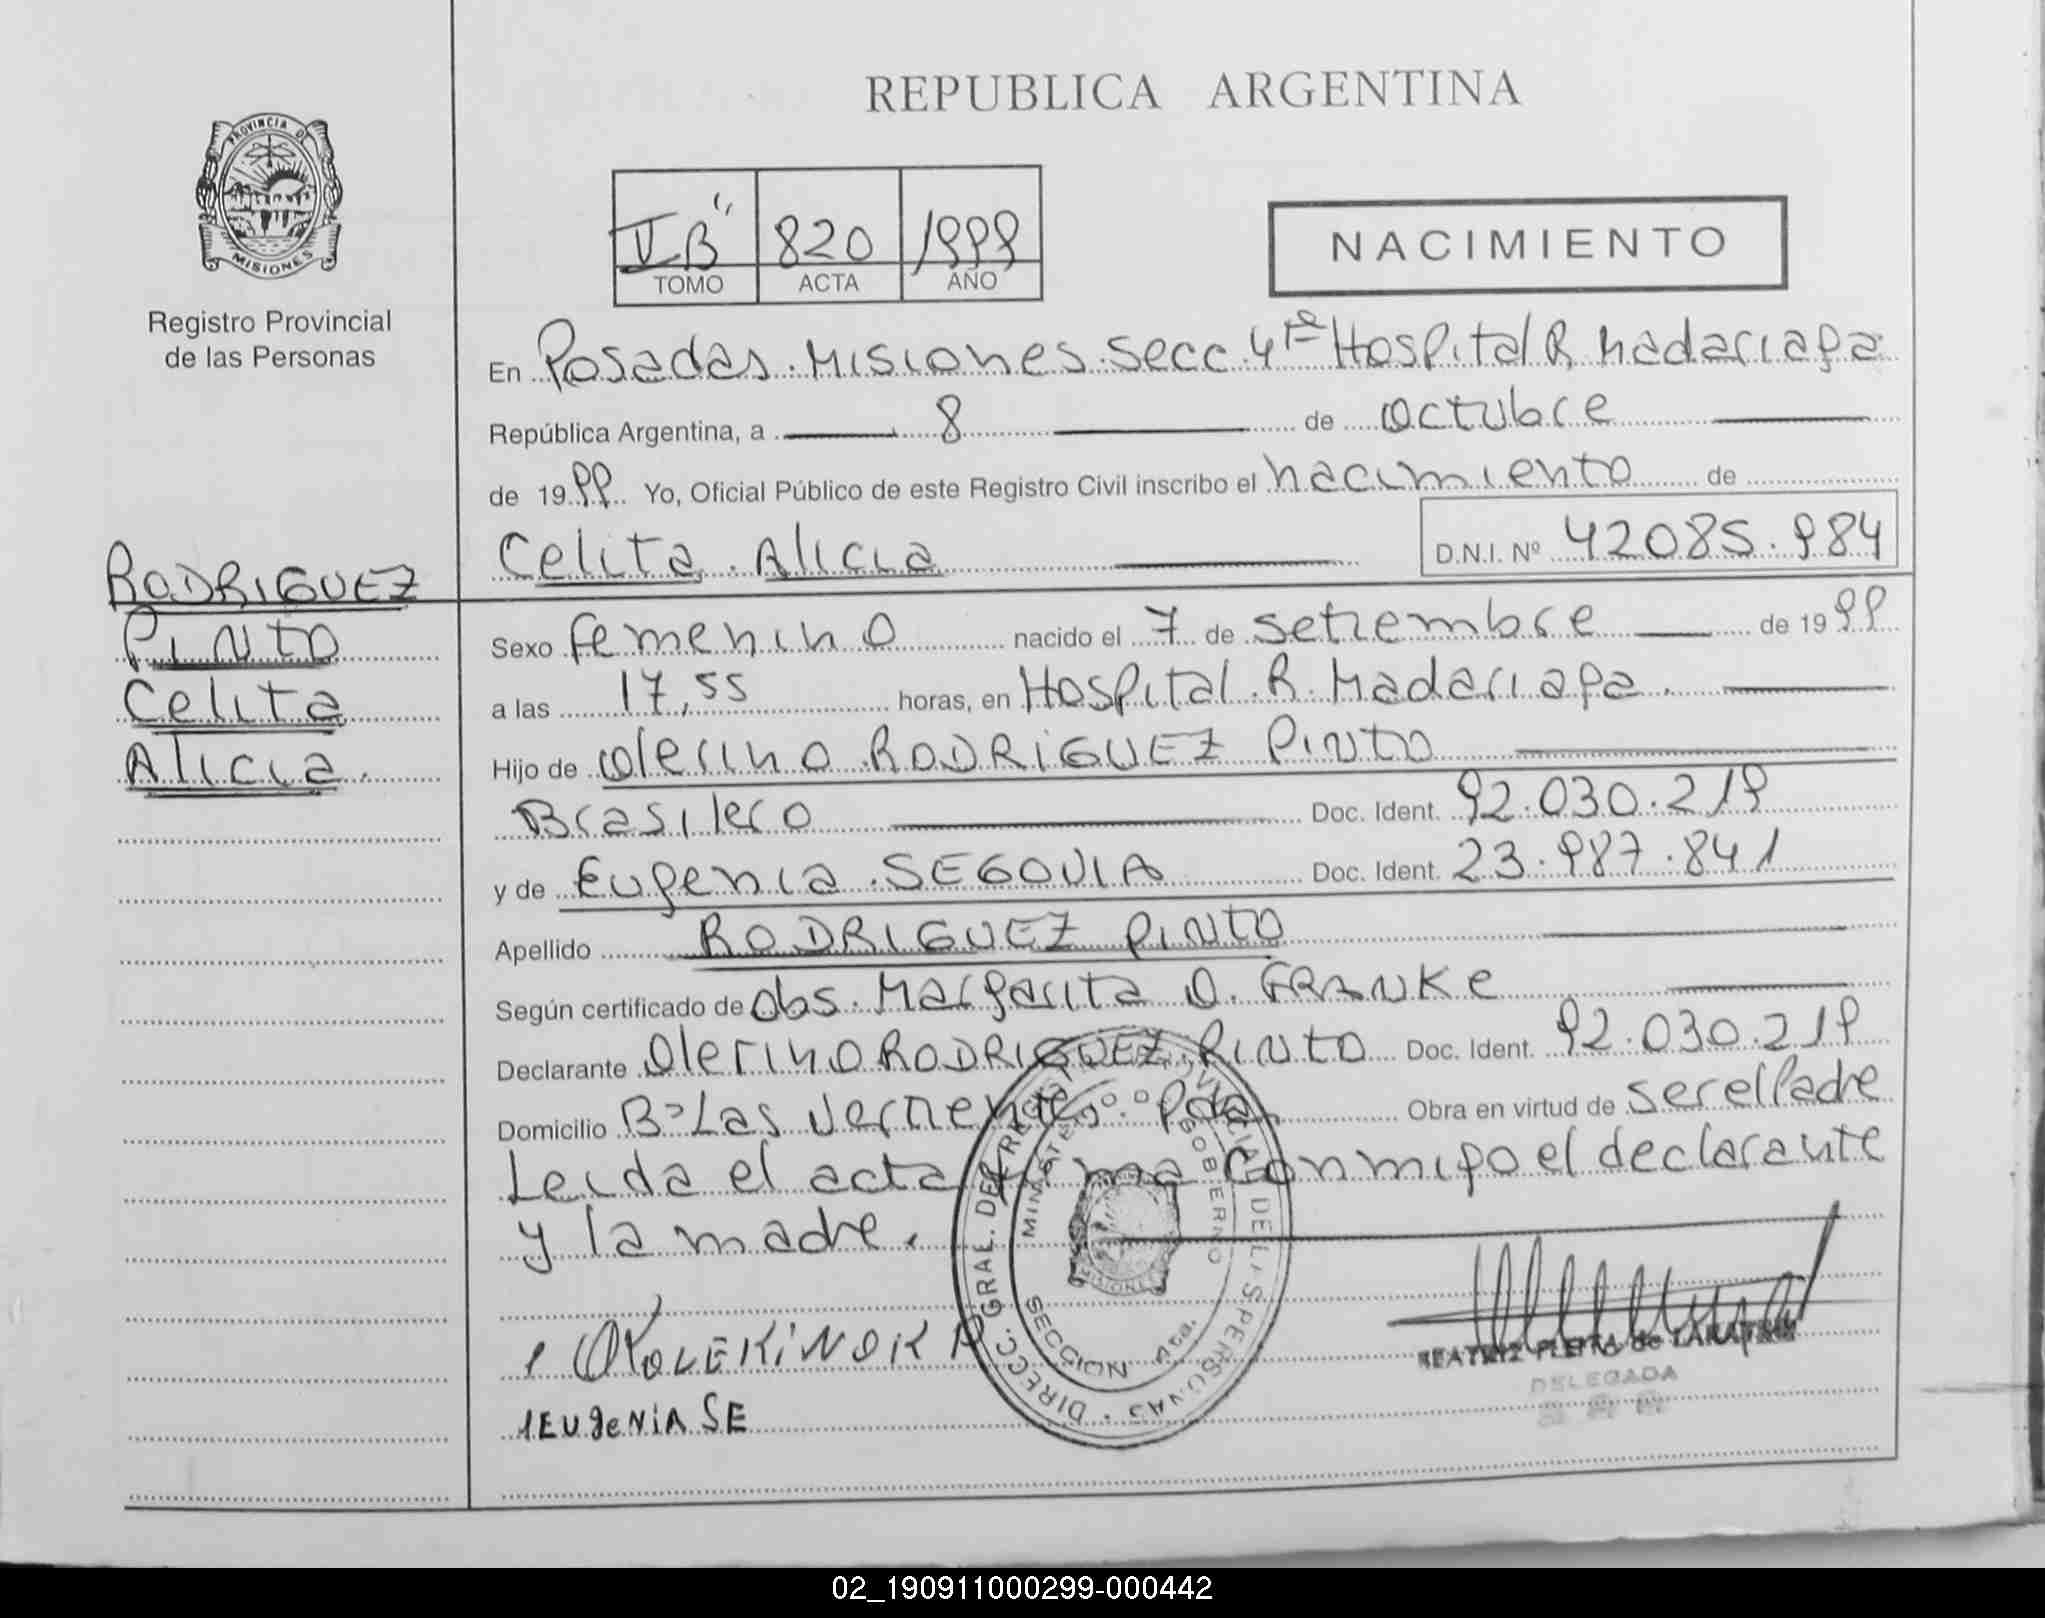 REPUBLICA ARGENTINA
PROVINCIA DE
MISIONES
Registro Provincial
de las Personas
"B" 820 1999
TOMO ACTA AÑO
NACIMIENTO
En Posadas. Misiones. Secc. 4ta Hospital R. Madariaga
República Argentina, a 8 de octubre
de 1999 Yo, Oficial Público de este Registro Civil inscribo el nacimiento de
Celita. Alicia D.N.I. Nº 42085.984
RODRIGUEZ
PINTO
Celita
Alicia.
Sexo femenino nacido el 7 de setiembre de 1999
a las 17,55 horas, en Hospital. R. Madariaga.
Hijo de Olerino RODRIGUEZ PINTO
Brasilero Doc. Ident. 92.030.219
y de Eugenia. SEGOVIA Doc. Ident. 23.987.841
Apellido RODRIGUEZ PINTO
Según certificado de Obs. Margarita O. FRANKE
Declarante Olerino RODRIGUEZ. PINTO Doc. Ident. 92.030.219
Domicilio Bº Las Pdas. Obra en virtud de ser el Padre
Leida el acta firma conmigo el declarante
y la madre.
EUgeNiA SE
DIRECC. GRAL. DEL REGISTRO PROVINCIAL DE LAS PERSONAS
MINISTERIO DE GOBIERNO
SECCION 4ta.
BEATRIZ de
DELEGADA
02_190911000299-000442